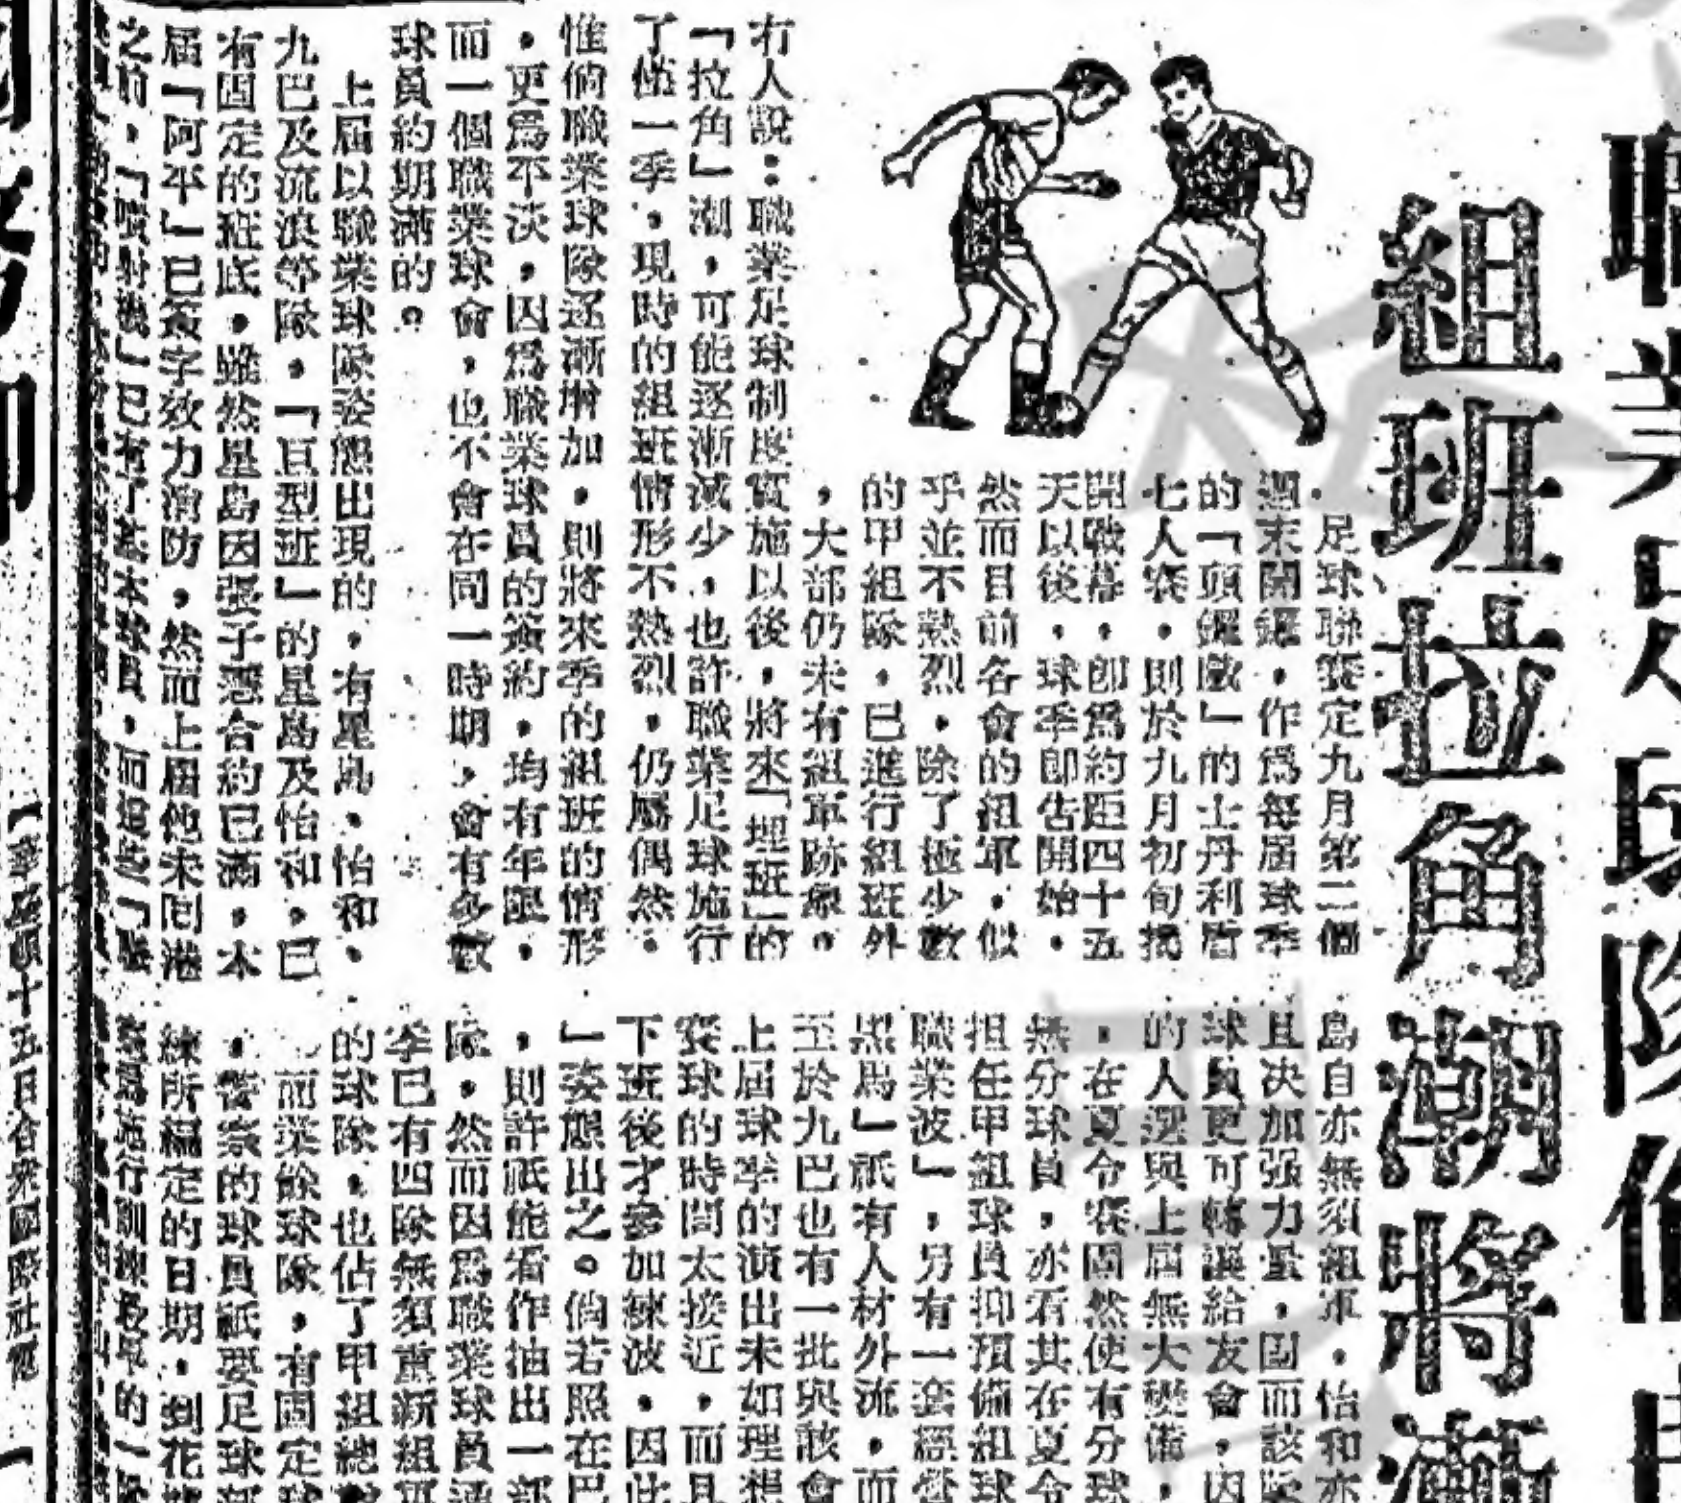 職業足球隊倘
組班拉角潮將漸
足球聯賽定九月第二個
週末開鑼,作爲每屆球季
的「頭鑼戲」的士丹利盾
七人賽,則於九月初旬揭
開戰幕,即爲約距四十五
天以後,球季即告開始。
然而目前各會的組軍,似
乎並不熱烈,除了極少數
的甲組隊,已進行組班外
,大部仍未有組軍跡象。
有人說:職業足球制度實施以後,將來「埋班」的
「拉角」潮,可能逐漸減少,也許職業足球施行
了僅一季,現時的組班情形不熱烈,仍屬偶然。
惟倘職業球隊逐漸增加,則將來季的組班的情形
,更爲平淡,因爲職業球員的簽約,均有年限,
而一個職業球會,也不會在同一時期,會有多數
球員約期滿的。
上屆以職業球隊姿態出現的,有星島、怡和、
九巴及流浪等隊,「巨型班」的星島及怡和,已
有固定的班底,雖然星島因張子慧合約已滿,本
屆「阿平」已簽字效力消防,然而上屆他未囘港
之前,「噴射機」已有了基本球員,
島自亦無須組軍,怡和亦
且決加强力量,固而該隊
球員更可轉讓給友會,因
的人選與上屆無大變備,
,在夏令賽固然使有分球
無分球員,亦看其在夏令
担任甲組球員抑預備組球
職業波」,另有一套經營
黑馬」祇有人材外流,而
至於九巴也有一批與該會
上屆球季的演出未如理想
賽球的時間太接近,而且
下班後才參加練波,因此
」姿態出之。倘若照在巴
,則許祇能看作抽出一部
隊,然而因爲職業球員
季已有四隊無須重新組班
的球隊,也佔了甲組總
而業餘球隊,有固定球
,

的球員祇要足球部
練所編定的日期,到花
施行訓練最早的一
十五日合衆國際社電